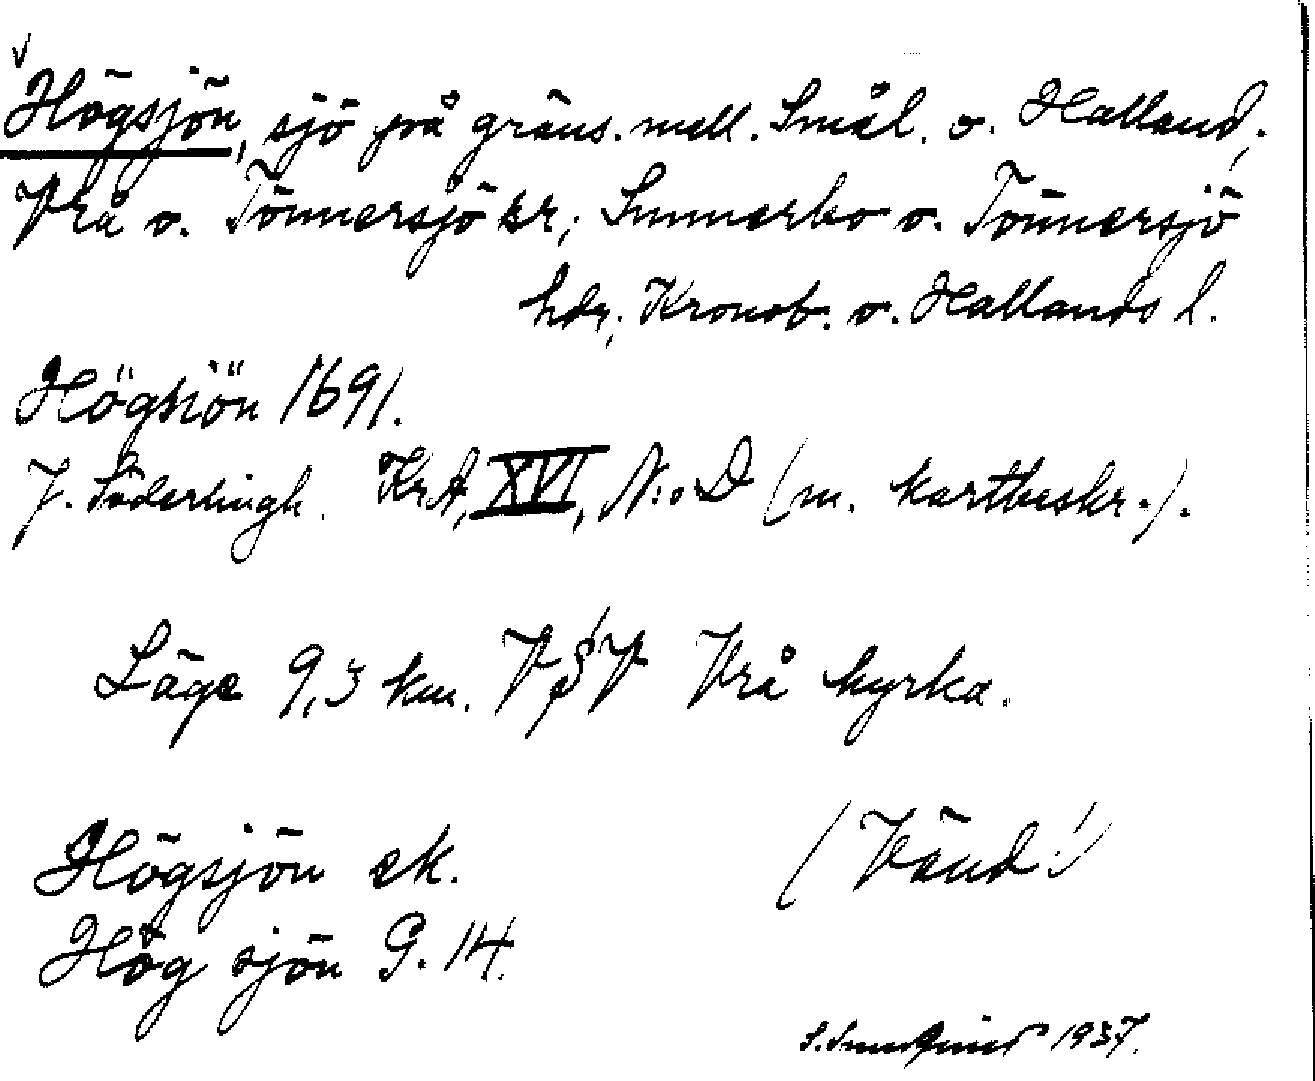 Högsjön, sjö på gräns. mell. Smål. o. Halland;
Vrå o. Tönnersjö sr; Sunnerbo o. Tönnersjö
hdr; Kronob. o. Hallands l.
Högsiön 1691.
J. Söderlingh. Kr.A, XVI, N:o D (m. kartbeskr.).
Läge 9,3 km. VSV Vrå kyrka.
Högsjön ek. (Vänd!)
Hög sjön G. 14.
1937.